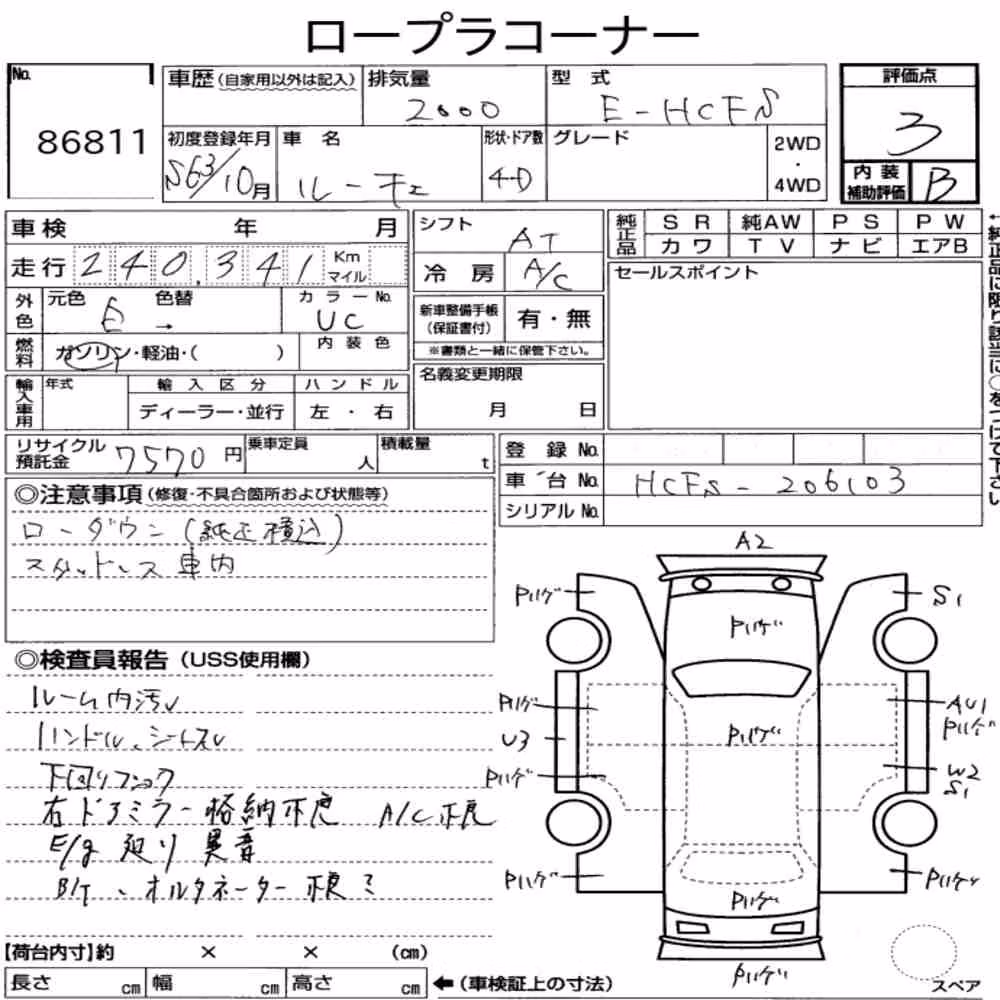 ロープラコーナー
No. 86811
車歴 (自家用以外は記入)
排気量 2000
型式 E-HCFS
評価点 3
初度登録年月 S63/10月
車名 ルーチェ
形状・ドア数 4-D
グレード
2WD
・
4WD
内装
補助評価 B
車検 年 月
走行 240,341 Km
マイル
外色 元色 E → 色替
カラーNo. UC
燃料 ガソリン・軽油・( )
内装色
輸入車用 年式 輸入区分 ハンドル
ディーラー・並行 左・右
シフト AT
冷房 A/C
新車整備手帳
(保証書付) 有・無
※書類と一緒に保管下さい。
名義変更期限
月 日
純正品 SR 純AW PS PW
カワ TV ナビ エアB
セールスポイント
←純正品に限り該当に○をつけて下さい
リサイクル
預託金 7570円
乗車定員 人
積載量 t
登録 No.
車台 No. HCFS-206103
シリアル No.
◎注意事項 (修復・不具合箇所および状態等)
ローダウン (純正積込)
スタットレス車内
◎検査員報告 (USS使用欄)
ルーム内汚レ
ハンドル、シートスレ
下回りフショク
右ドアミラー格納不良 A/C不良
E/g 廻り 異音
B/T、オルタネーター不良ミ
【荷台内寸】約 × × (cm)
長さ cm 幅 cm 高さ cm ←(車検証上の寸法)
A2
Pハゲ S1
Pハゲ
Pハゲ AU1
Pハゲ
U3 Pハゲ
Pハゲ W2
S1
Pハゲ Pハゲ
Pハゲ
Pハゲ
スペア